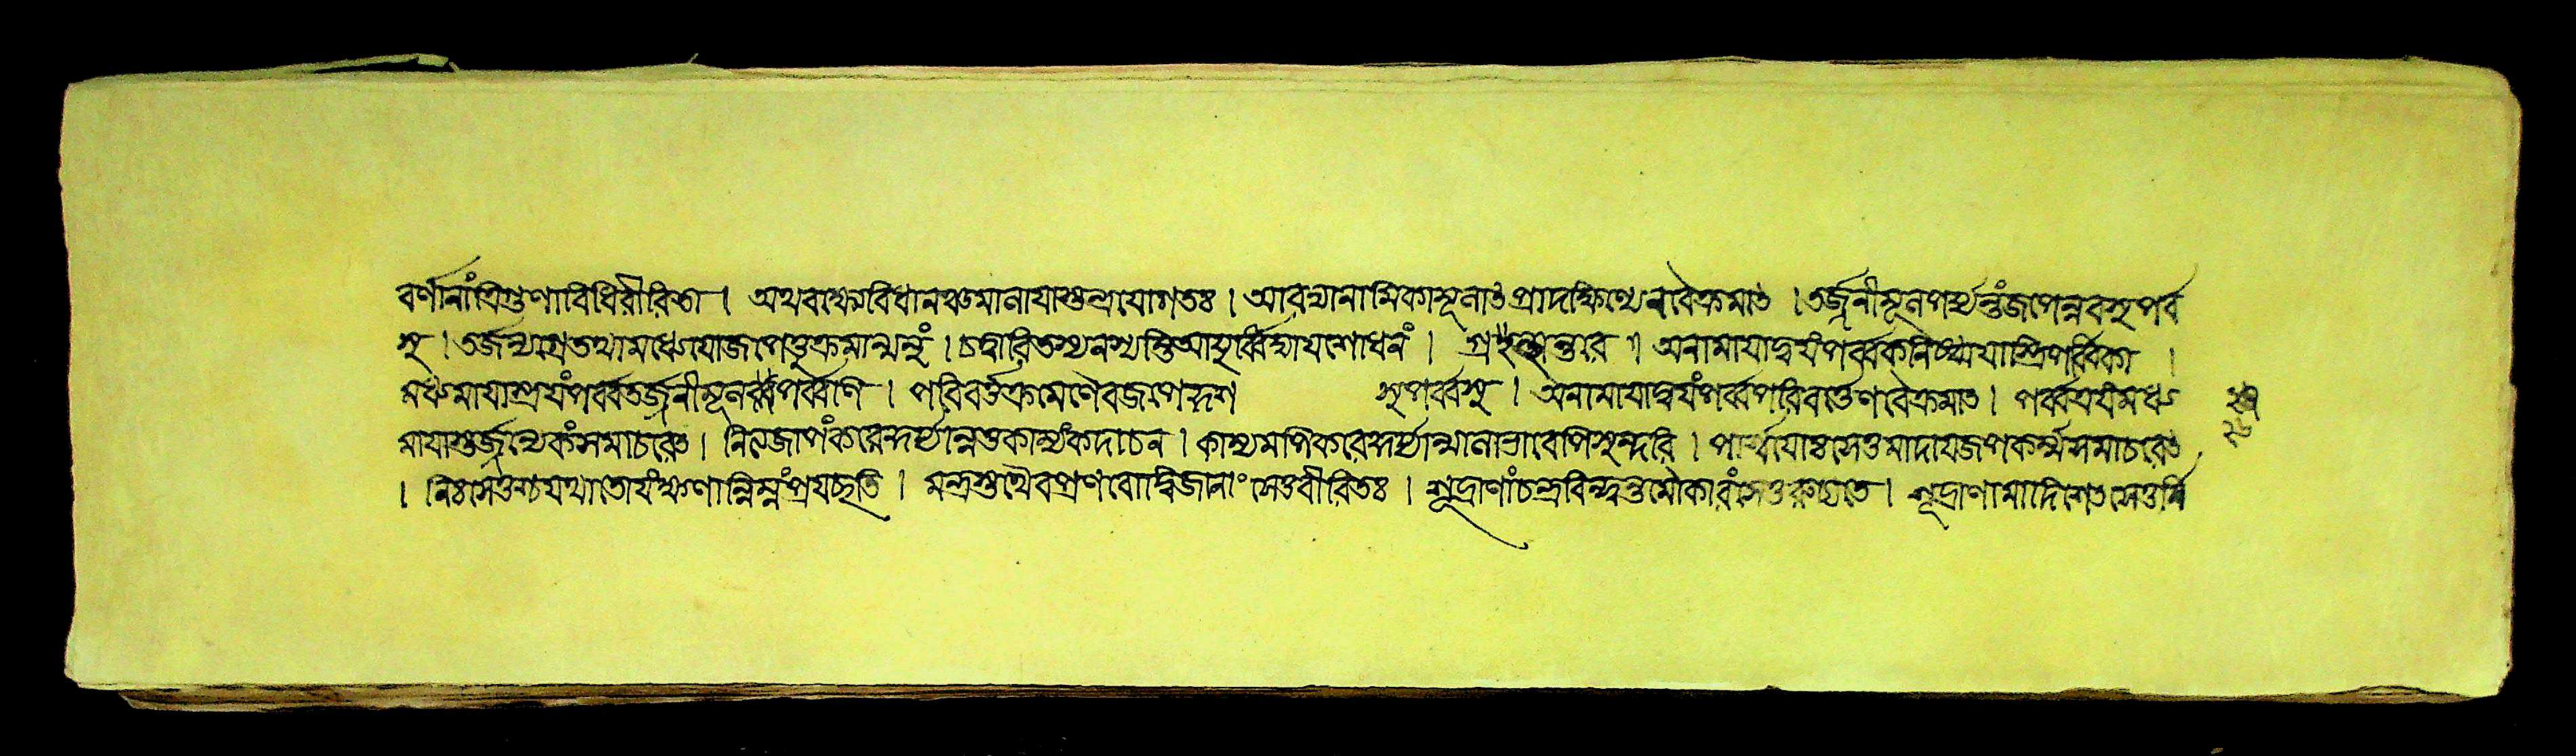 বর্ণানাংত্রিগুণাবিধিরীরিতা । অথবাক্ষ্যবিধানঞ্চমানাযাস্তুলভাযোগতঃ । আরভ্যানামিকামূলাৎপ্রাদক্ষিণ্যেনবৈক্রমাৎ । তর্জ্জনীমূলপর্য্যন্তংজপেন্নবসুপর্ব
সু । তর্জন্যগ্রেতথামধ্যেযোজপেত্তুক্রমান্মনুং । চত্বারিতস্যনশ্যন্তিআয়ুর্ব্বিদ্যাযশোধনং । অনামাযাদ্বযংপর্ব্বকনিষ্ঠাযাস্ত্রিপর্ব্বিকা ।
মধ্যমাযাস্ত্রযংপর্ব্বতর্জ্জনীমূলপর্ব্বণি । পরিবর্ত্তক্রমেণৈবজপেদ্দশ সুপর্ব্বসু । অনামাযাদ্বযংপর্ব্বপরিবর্ত্তেণবৈক্রমাৎ । পর্ব্বত্রযংমধ্য
মাযাস্তর্জ্জন্যেকংসমাচরেৎ । নিত্যজাপংকরেকুর্য্যান্নতুকাম্যংকদাচন । কাম্যমপিকরেকুর্য্যান্মালাভাবেপিসুন্দরি । পার্শ্বযোঃসেতুমাদাযজপকর্ম্মসমাচরেৎ
। নিঃসেতুশ্চযথাতোযংক্ষণান্নিম্নংপ্রযচ্ছতি । মন্ত্রস্তথৈবপ্রণবোদ্বিজানাং সেতুরীরিতঃ । শূদ্রাণাংচন্দ্রবিন্দুন্তুমৌকারংসেতুরুচ্যতে । শূদ্রাণামাদিসেতুসেতুর্বি